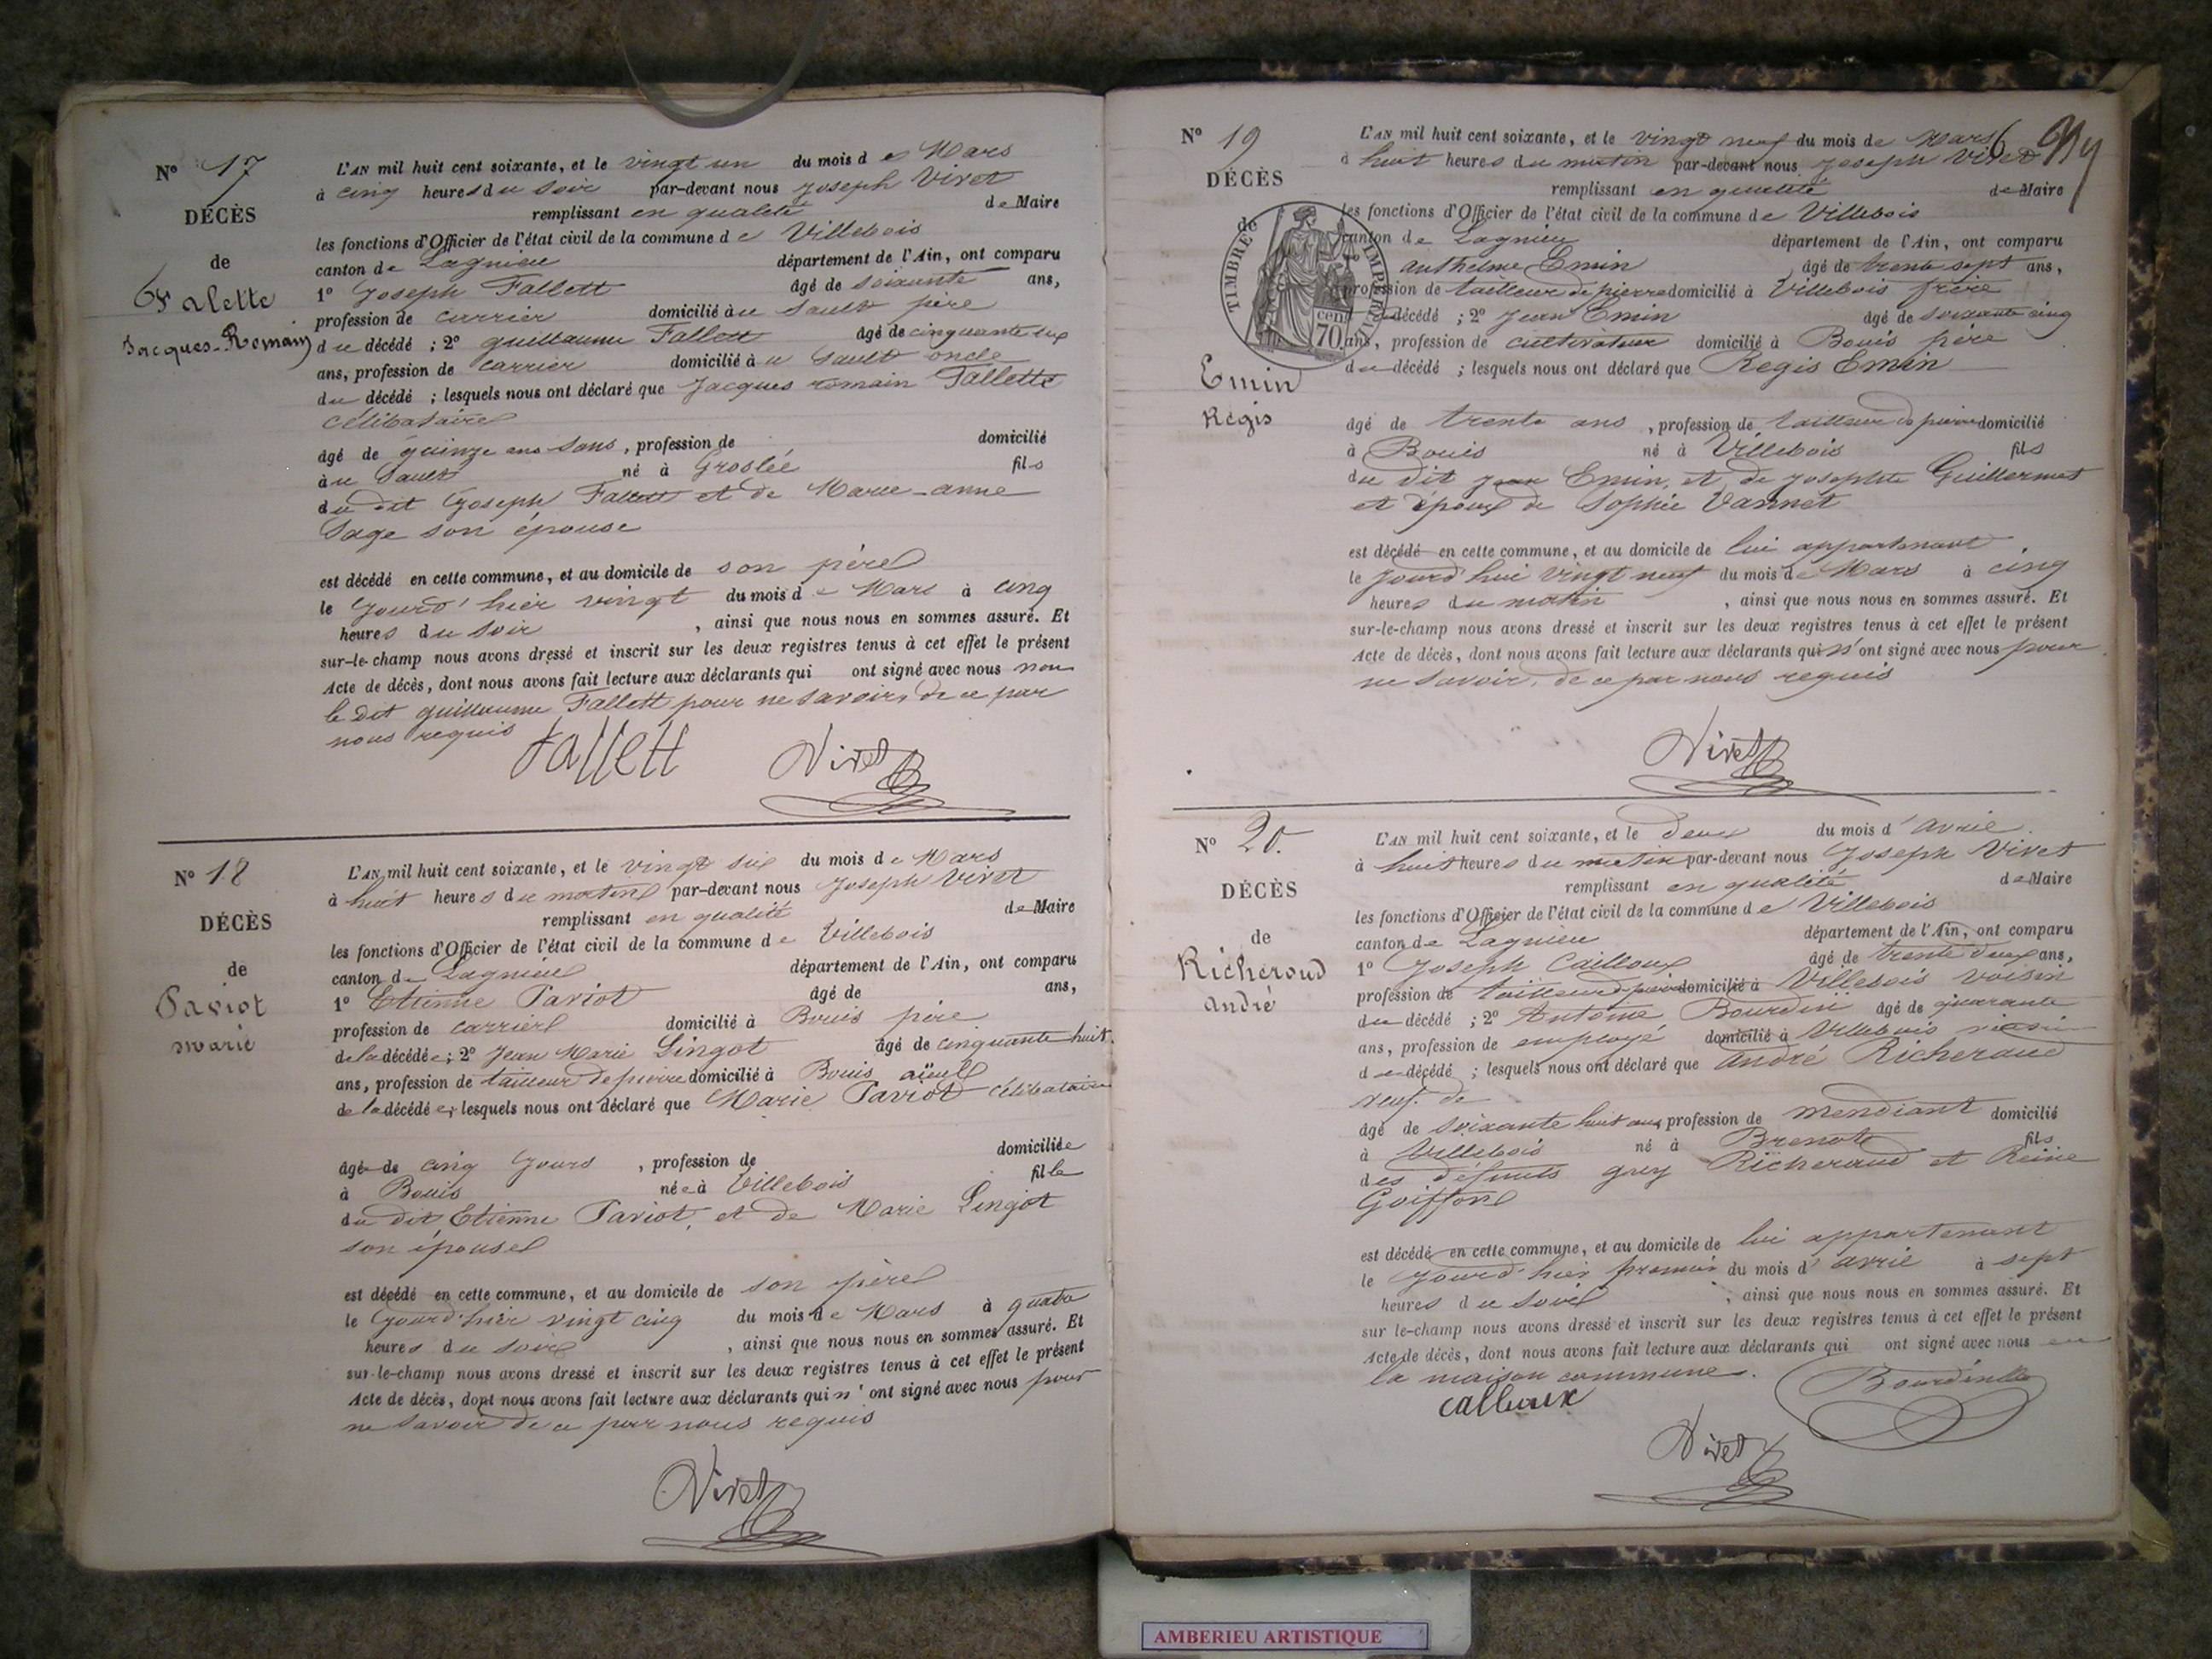 N° 17
DÉCÈS
de
Falette
Jacques-Romain
L'AN mil huit cent soixante, et le vingt un du mois de Mars
à cinq heures du soir par-devant nous Joseph Vivet
remplissant en qualité de Maire
les fonctions d'Officier de l'état civil de la commune de Villebois
canton de Lagnieu département de l'Ain, ont comparu
1° Joseph Fallett âgé de soixante ans,
profession de carrier domicilié au Sault père
du décédé ; 2° guillaume Fallett âgé de cinquante six
ans, profession de carrier domicilié au Sault oncle
du décédé ; lesquels nous ont déclaré que Jacques romain Fallette
célibataire
âgé de quinze ans sans, profession de domicilié
au Sault né à Groslée fils
du dit Joseph Fallett et de Marie-anne
Sage son épouse
est décédé en cette commune, et au domicile de son père
le jourd'hier vingt du mois de Mars à cinq
heures du soir , ainsi que nous nous en sommes assuré. Et
sur-le-champ nous avons dressé et inscrit sur les deux registres tenus à cet effet le présent
Acte de décès, dont nous avons fait lecture aux déclarants qui ont signé avec nous non
le dit guillaume Fallett pour ne savoir, de ce par
nous requis
fallett Vivet
N° 18
DÉCÈS
de
Paviot
marie
L'AN mil huit cent soixante, et le vingt six du mois de Mars
à huit heures du matin par-devant nous Joseph Vivet
remplissant en qualité de Maire
les fonctions d'Officier de l'état civil de la commune de Villebois
canton de Lagnieu département de l'Ain, ont comparu
1° Etienne Paviot âgé de ans,
profession de carrier domicilié à Bouis père
de la décédée; 2° Jean Marie Lingot âgé de cinquante huit
ans, profession de tailleur de pierre domicilié à Bouis aïeul
de la décédée; lesquels nous ont déclaré que Marie Paviot célibataire
âgé de cinq jours , profession de domiciliée
à Bouis née à Villebois fille
du dit Etienne Paviot, et de Marie Lingot
son épouse
est décédé en cette commune, et au domicile de son père
le jourd'hier vingt cinq du mois de Mars à quatre
heures du soir , ainsi que nous nous en sommes assuré. Et
sur-le-champ nous avons dressé et inscrit sur les deux registres tenus à cet effet le présent
Acte de décès, dont nous avons fait lecture aux déclarants qui n'ont signé avec nous pour
ne savoir de ce par nous requis
Vivet
N° 19
DÉCÈS
de
TIMBRE IMPERIAL
70 cent
Emin
Régis
L'AN mil huit cent soixante, et le vingt neuf du mois de Mars
à huit heures du matin par-devant nous Joseph Vivet
remplissant en qualité de Maire
les fonctions d'Officier de l'état civil de la commune de Villebois
canton de Lagnieu département de l'Ain, ont comparu
1° anthelme Emin âgé de trente sept ans,
profession de tailleur de pierre domicilié à Villebois frère
du décédé ; 2° Jean Emin âgé de soixante cinq
ans, profession de cultivateur domicilié à Bouis père
du décédé ; lesquels nous ont déclaré que Regis Emin
âgé de trente ans , profession de tailleur de pierre domicilié
à Bouis né à Villebois fils
du dit Jean Emin, et de Josephte Guillermet
et époux de Sophie Vannet
est décédé en cette commune, et au domicile de lui appartenant
le jourd'hui vingt neuf du mois de Mars à cinq
heures du matin , ainsi que nous nous en sommes assuré. Et
sur-le-champ nous avons dressé et inscrit sur les deux registres tenus à cet effet le présent
Acte de décès, dont nous avons fait lecture aux déclarants qui n'ont signé avec nous pour
ne savoir, de ce par nous requis
Vivet
N° 20.
DÉCÈS
de
Richeroud
André
L'AN mil huit cent soixante, et le deux du mois d'avril
à huit heures du matin par-devant nous Joseph Vivet
remplissant en qualité de Maire
les fonctions d'Officier de l'état civil de la commune de Villebois
canton de Lagnieu département de l'Ain, ont comparu
1° Joseph Cailloux âgé de trente deux ans,
profession de tailleur d pierre domicilié à Villebois voisin
du décédé ; 2° Antoine Bourdin âgé de quarante
ans, profession de employé domicilié à Villebois voisin
du décédé ; lesquels nous ont déclaré que André Richeraud
veuf de
âgé de soixante huit ans, profession de mendiant domicilié
à Villebois né à Brenote fils
des défunts guy Richeraud et Reine
Goiffon
est décédé en cette commune, et au domicile de lui appartenant
le jourd'hier premier du mois d'avril à sept
heures du soir , ainsi que nous nous en sommes assuré. Et
sur le-champ nous avons dressé et inscrit sur les deux registres tenus à cet effet le présent
Acte de décès, dont nous avons fait lecture aux déclarants qui ont signé avec nous en
la maison commune.
Vivet
AMBERIEU ARTISTIQUE